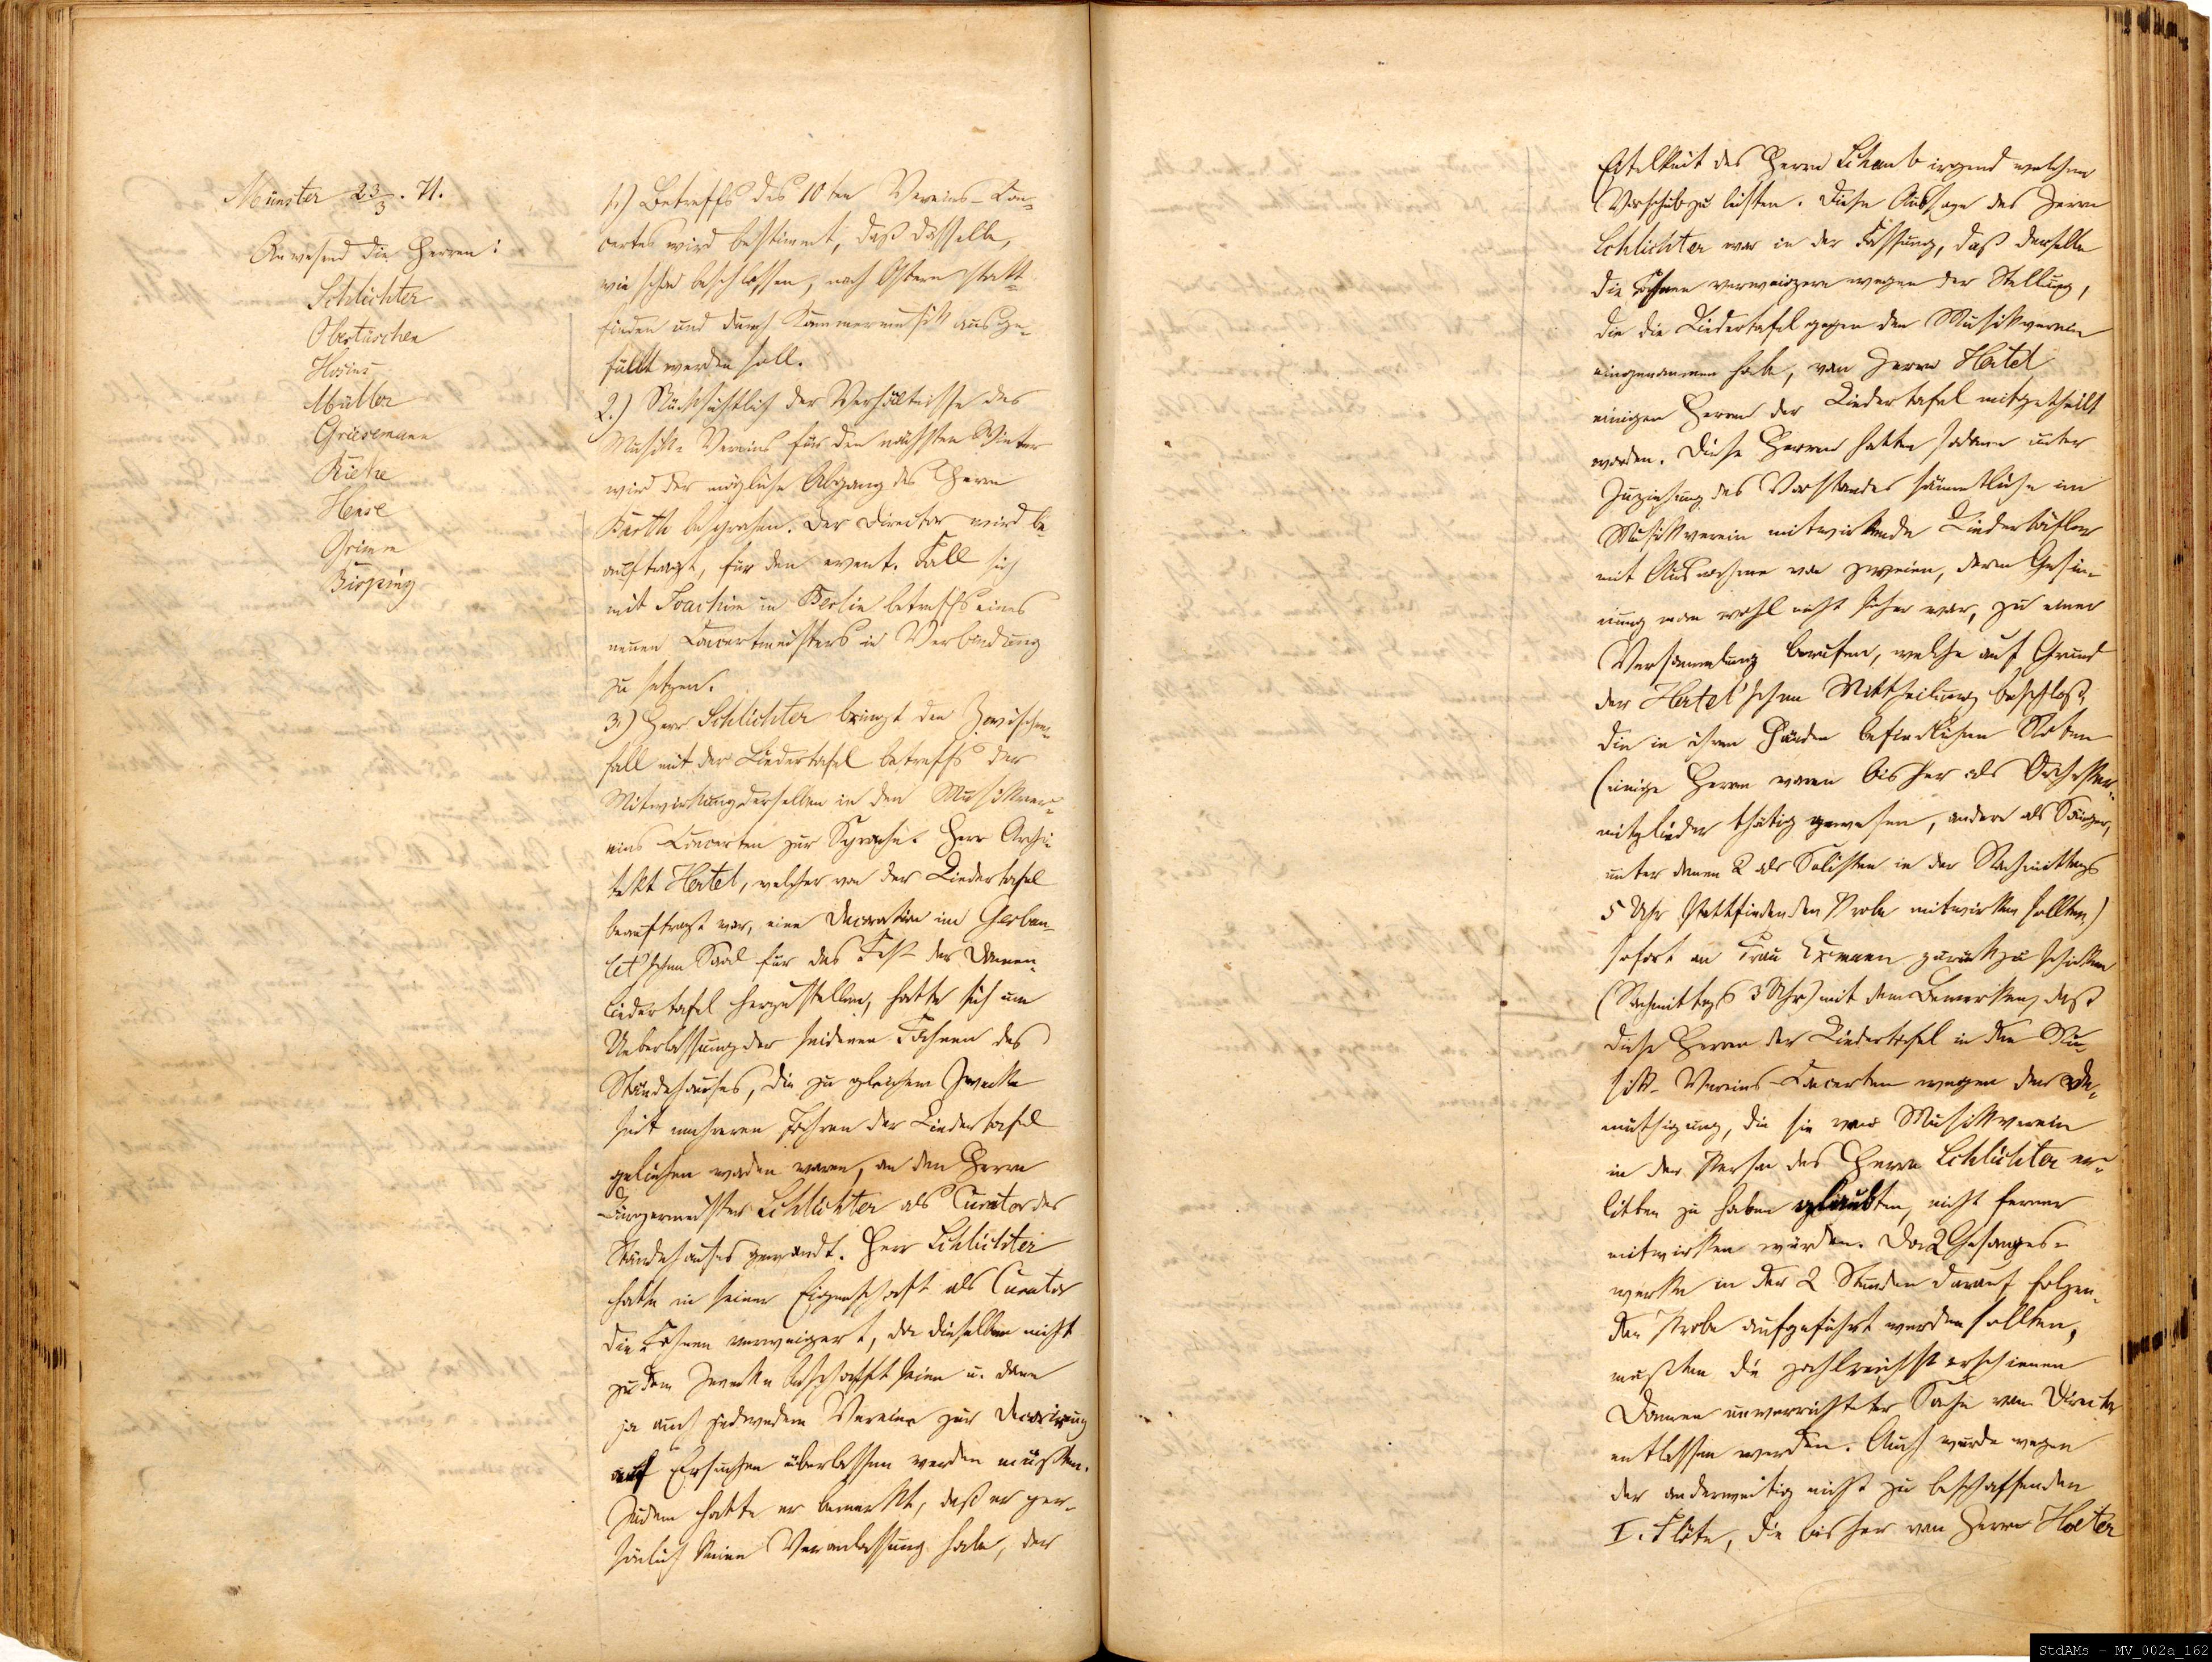 Münster 23/3. 71.
Anwesend die Herren:
Schlichter
Obertüschen
Hosius
Müller
Griesemann
Kiehe
Hense
Grimm
Bisping
1.) Betreffs des 10ten Vereins-Con-
certes wird bestimmt, daß dasselbe,
wie schon beschlossen, nach Ostern statt-
finden und durch Kammermusik ausge-
füllt werden soll.
2.) Rücksichtlich der Verhältnisse des
Musik-Vereins für den nächsten Winter
wird der mögliche Abgang des Herrn
Barth besprochen. Der Director wird be-
auftragt, für den event. Fall sich
mit Joachim in Berlin betreffs eines
neuen Concertmeisters in Verbindung
zu setzen.
3.) Herr Schlichter bringt den Zwischen-
fall mit der Liedertafel betreffs der
Mitwirkung derselben in den Musikver-
eins Concerten zur Sprache. Herr Archi-
tekt Hertel, welcher von der Liedertafel
beauftragt war, eine Decoration im Gerbau-
let'schen Saal für das Fest der Damen-
liedertafel herzustellen, hatte sich um
Ueberlassung der seidenen Fahnen des
Ständehauses, die zu gleichem Zwecke
seit mehreren Jahren der Liedertafel
geliehen worden waren, an den Herrn
Bürgermeister Schlichter als Curator des
Ständehauses gewandt. Herr Schlichter
hatte in seiner Eigenschaft als Curator
die Fahnen verweigert, da dieselben nicht
zu dem Zwecke beschafft seien u. dann
ja auch jedwedem Vereine zur Decorirung
auf Ersuchen überlassen werden müßten.
Zudem hatte er bemerkt, daß er per-
sönlich keine Veranlassung habe, der
Eitelkeit des Herrn Schaub irgend welchen
Vorschub zu leisten. Diese Aussage des Herrn
Schlichter war in der Fassung, daß derselbe
die Fahnen verweigere wegen der Stellung,
die die Liedertafel gegen den Musikverein
eingenommen habe, von Herrn Hertel
einigen Herren der Liedertafel mitgetheilt
worden. Diese Herren hatten sodann unter
Zuziehung des Vorstandes sämmtliche im
Musikverein mitwirkende Liedertäfler
mit Ausnahme von zweien, deren Gesin-
nung man wohl nicht sicher war, zu einer
Versammlung berufen, welche auf Grund
der Hertel'schen Mittheilung beschloß,
die in ihren Händen befindlichen Noten
(einige Herren waren bisher als Orchester-
mitglieder thätig gewesen, andere als Sänger,
unter denen 2 als Solisten in der Nachmittags
5 Uhr stattfindenden Probe mitwirken sollten)
sofort an Frau Exmann zurückzuschicken
(Nachmittags 3 Uhr) mit dem Bemerken, daß
diese Herren der Liedertafel in den Mu-
sik-Vereins-Concerten wegen der De-
müthigung, die sie vom Musikverein
in der Person des Herrn Schlichter er-
litten zu haben glaubten, nicht ferner
mitwirken würden. Da 2 Gesanges-
werke in der 2 Stunden darauf folgen-
den Probe aufgeführt werden sollten,
mußten die zahlreichst erschienen
Damen unverrichteter Sache vom Director
entlassen werden. Auch wurde wegen
der anderweitig nicht zu beschaffenden
I. Flöte, die bisher von Herrn Holter
StdAMs - MV_002a_162